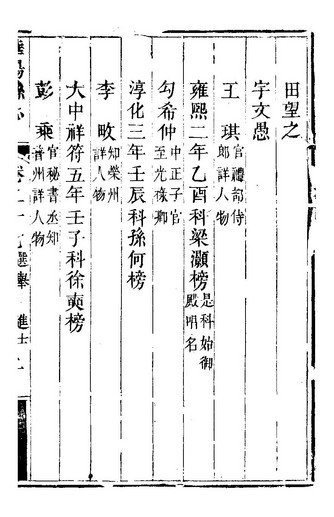 田望之
宇文愚
王琪官禮部侍郎詳人物
雍熙二年乙酉科梁灝榜是科始御殿唱名
勾希仲中正子官至光祿卿
淳化三年壬辰科孫何榜
李畋知榮州詳人物
大中祥符五年壬子科徐奭榜
彭乘官秘書丞知普州詳人物
卷二十七選舉 進士 二